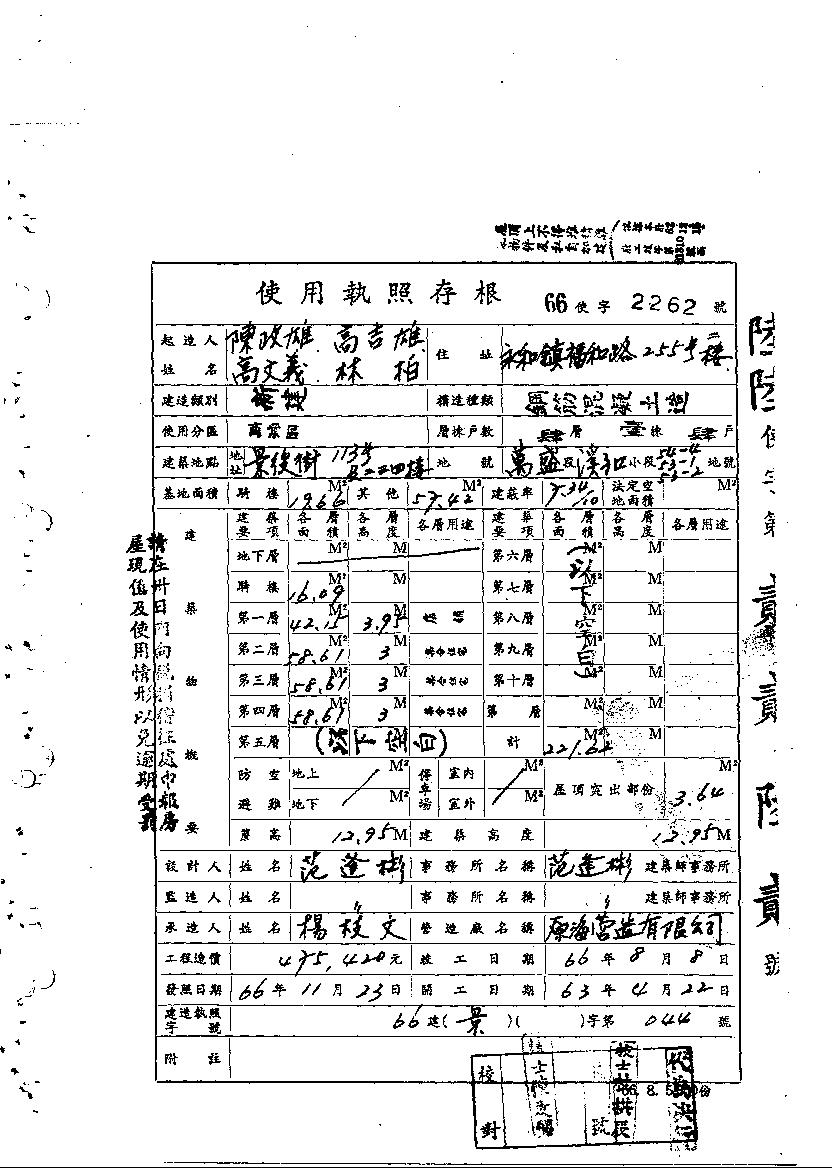 使用執照存根 66使字2262號
起造人姓名 陳政雄 高吉雄 高文義 林柏 住址 永和鎮福和路255號二樓
建造類別 新建 構造種類 鋼筋混凝土造
使用分區 商業區 層棟戶數 肆層 壹棟 肆戶
建築地點 地址 景後街113號 地號 萬盛段溪子口小段54-4 53-1 53-2地號
基地面積 騎樓 19.66M² 其他 57.42M² 建蔽率 7.34/10 法定空地面積 M²
建築物概要
建築要項 各層面積 各層高度 各層用途 建築要項 各層面積 各層高度 各層用途
地下層 M² M 第六層 M² M
騎樓 16.09M² M 第七層 M² M
第一層 42.15M² 3.95M 第八層 M² M
第二層 58.61M² 3M 集合住宅 第九層 M² M
第三層 58.61M² 3M 集合住宅 第十層 M² M
第四層 58.61M² 3M 集合住宅 第 層 M² M
(以下空白)
第五層 (以下空白) 計 M²
防空避難 地上 M² 停車場 室內 M² 屋頂突出部份 3.64 M²
地下 M² 室外 M²
簷高 12.95M 建築高度 12.95M
設計人 姓名 范蓬彬 事務所名稱 范蓬彬建築師事務所
監造人 姓名 〃 事務所名稱 〃 建築師事務所
承造人 姓名 楊枝文 營造廠名稱 東海營造有限公司
工程造價 475,420元 竣工日期 66年8月8日
發照日期 66年11月23日 開工日期 63年4月22日
建造執照字號 66建(景)( )字第044號
附註
校對
號
請在卅日內向稅捐稽征處申報房
屋現值及使用情形以免逾期受罰
陸陸使字第貳貳陸貳號